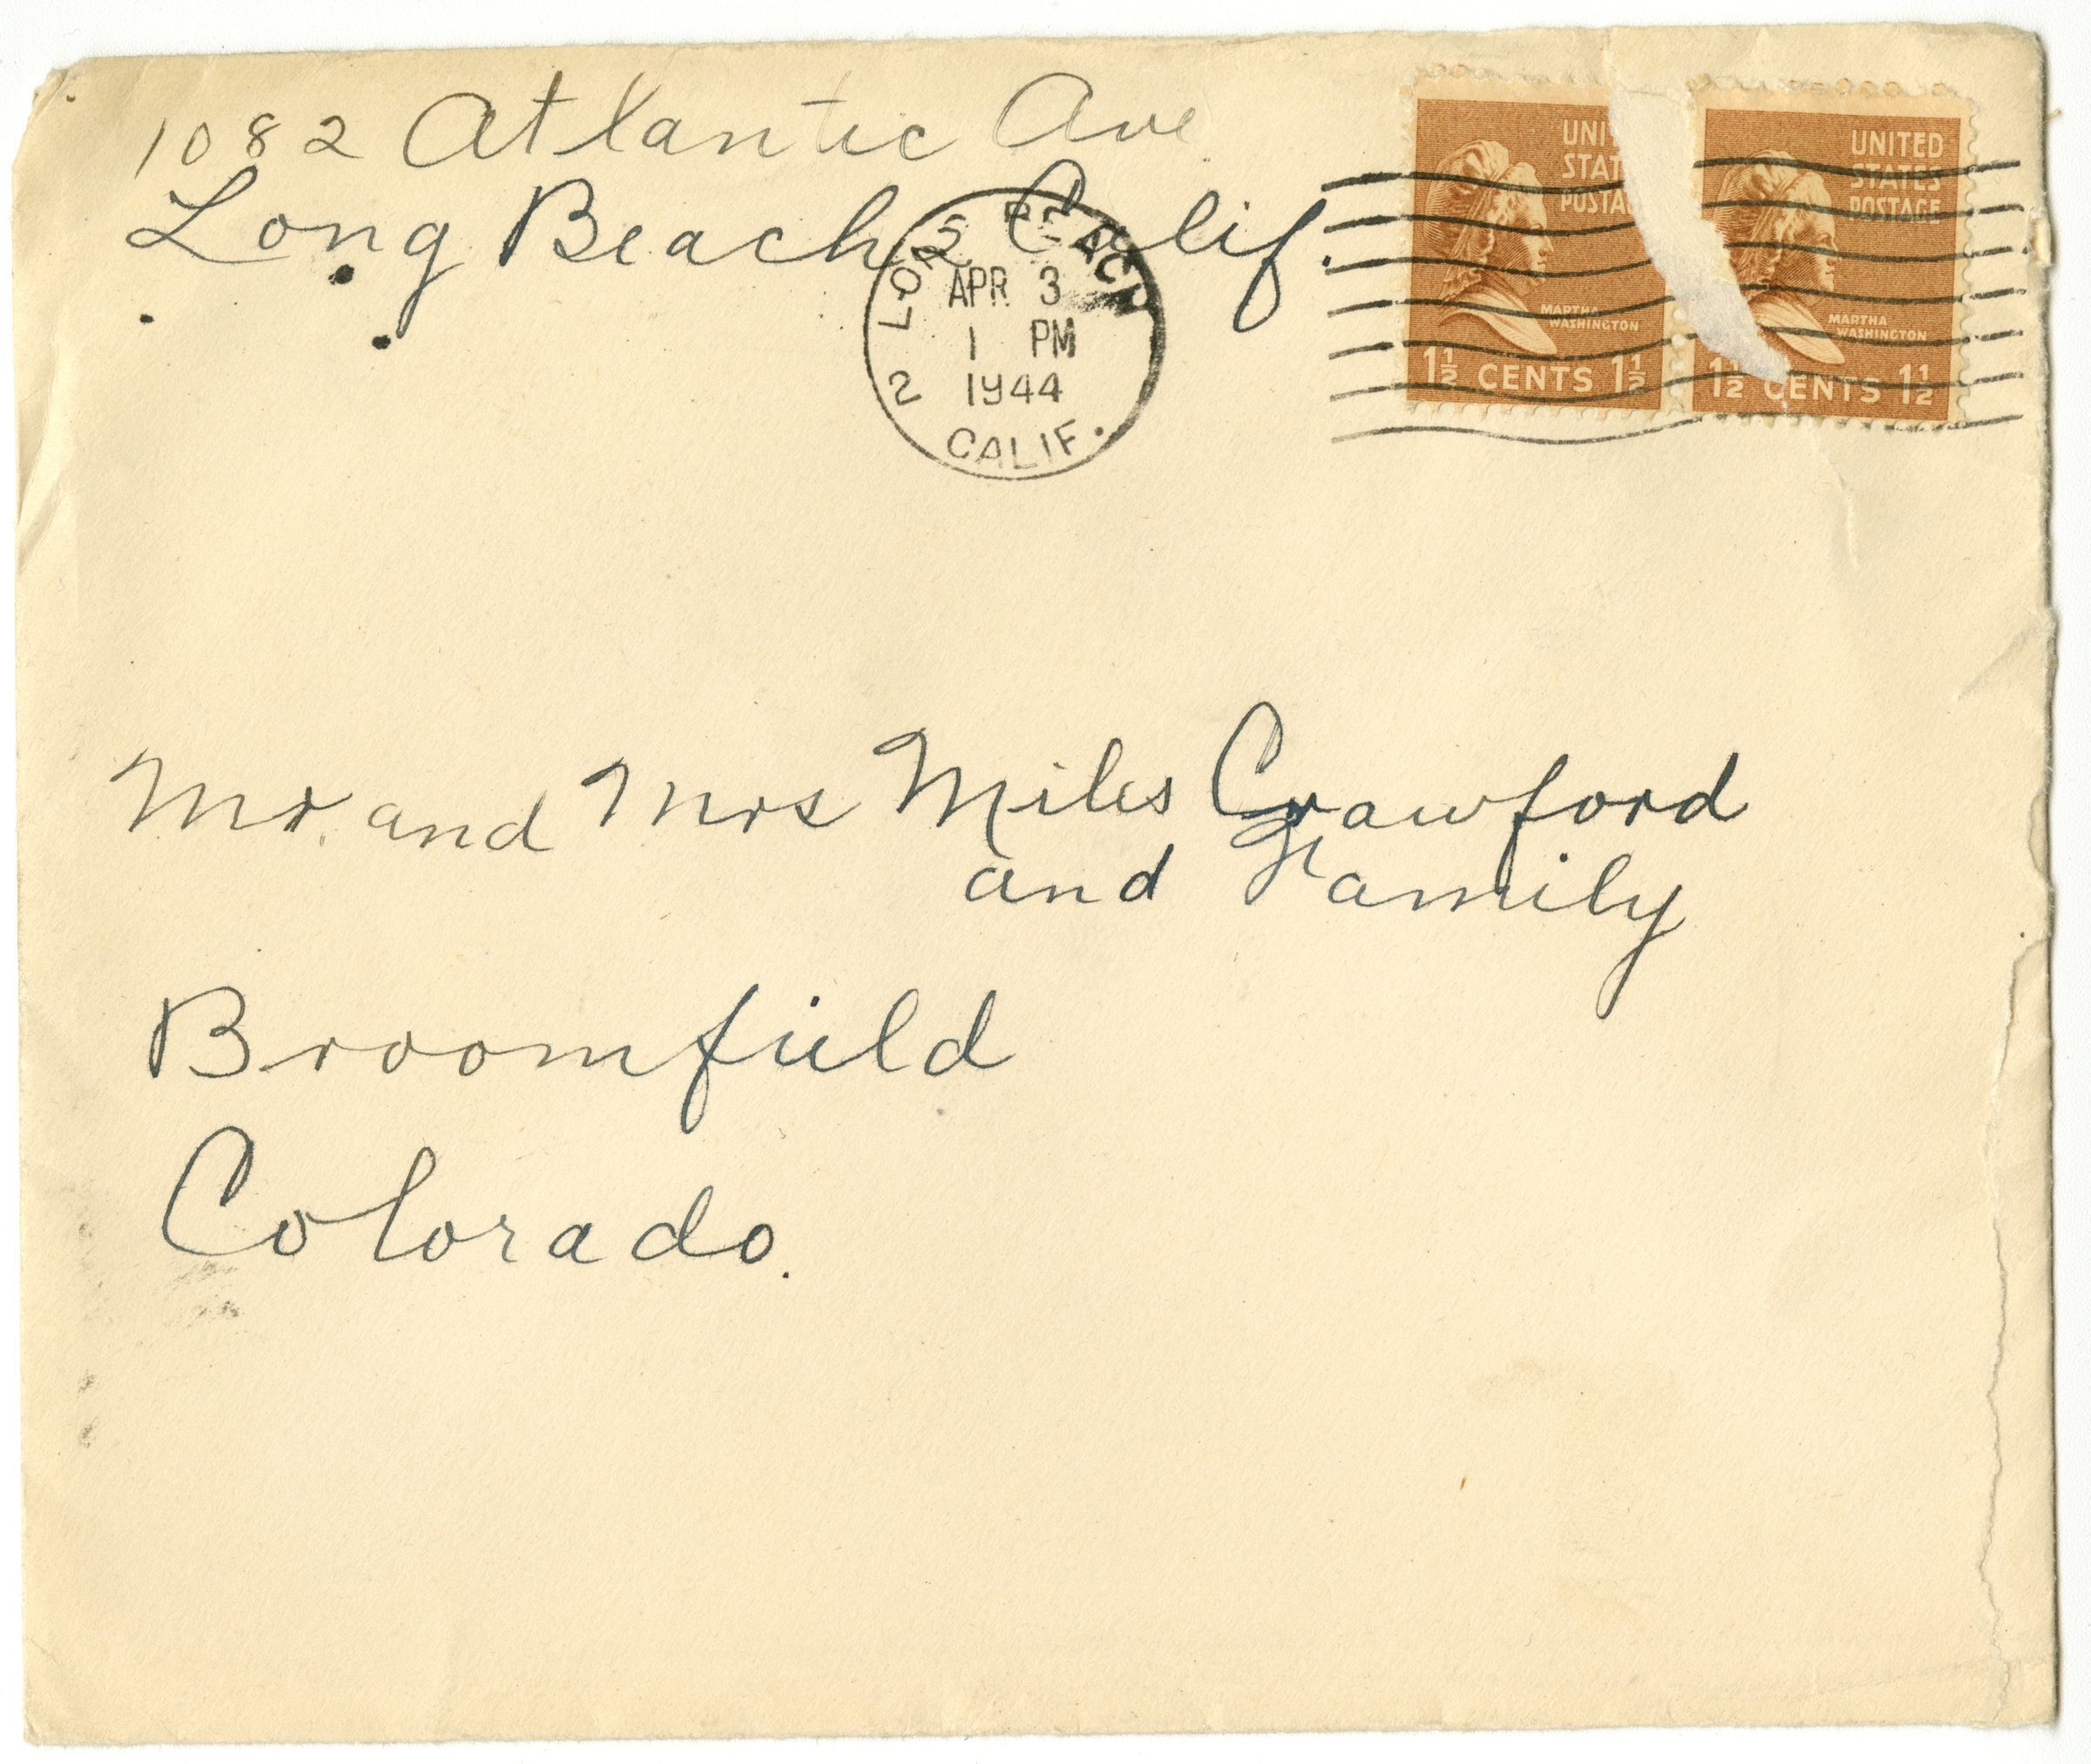 1082 Atlantic Ave.
Long Beach, Calif.
LONG BEACH
APR 3
1 PM
1944
2
CALIF.
UNI
STAT
POSTA
MARTHA
WASHINGTON
1½ CENTS 1½
UNITED
STATES
POSTAGE
MARTHA
WASHINGTON
1½ CENTS 1½
Mr. and Mrs Miles Crawford
and Family
Broomfield
Colorado.